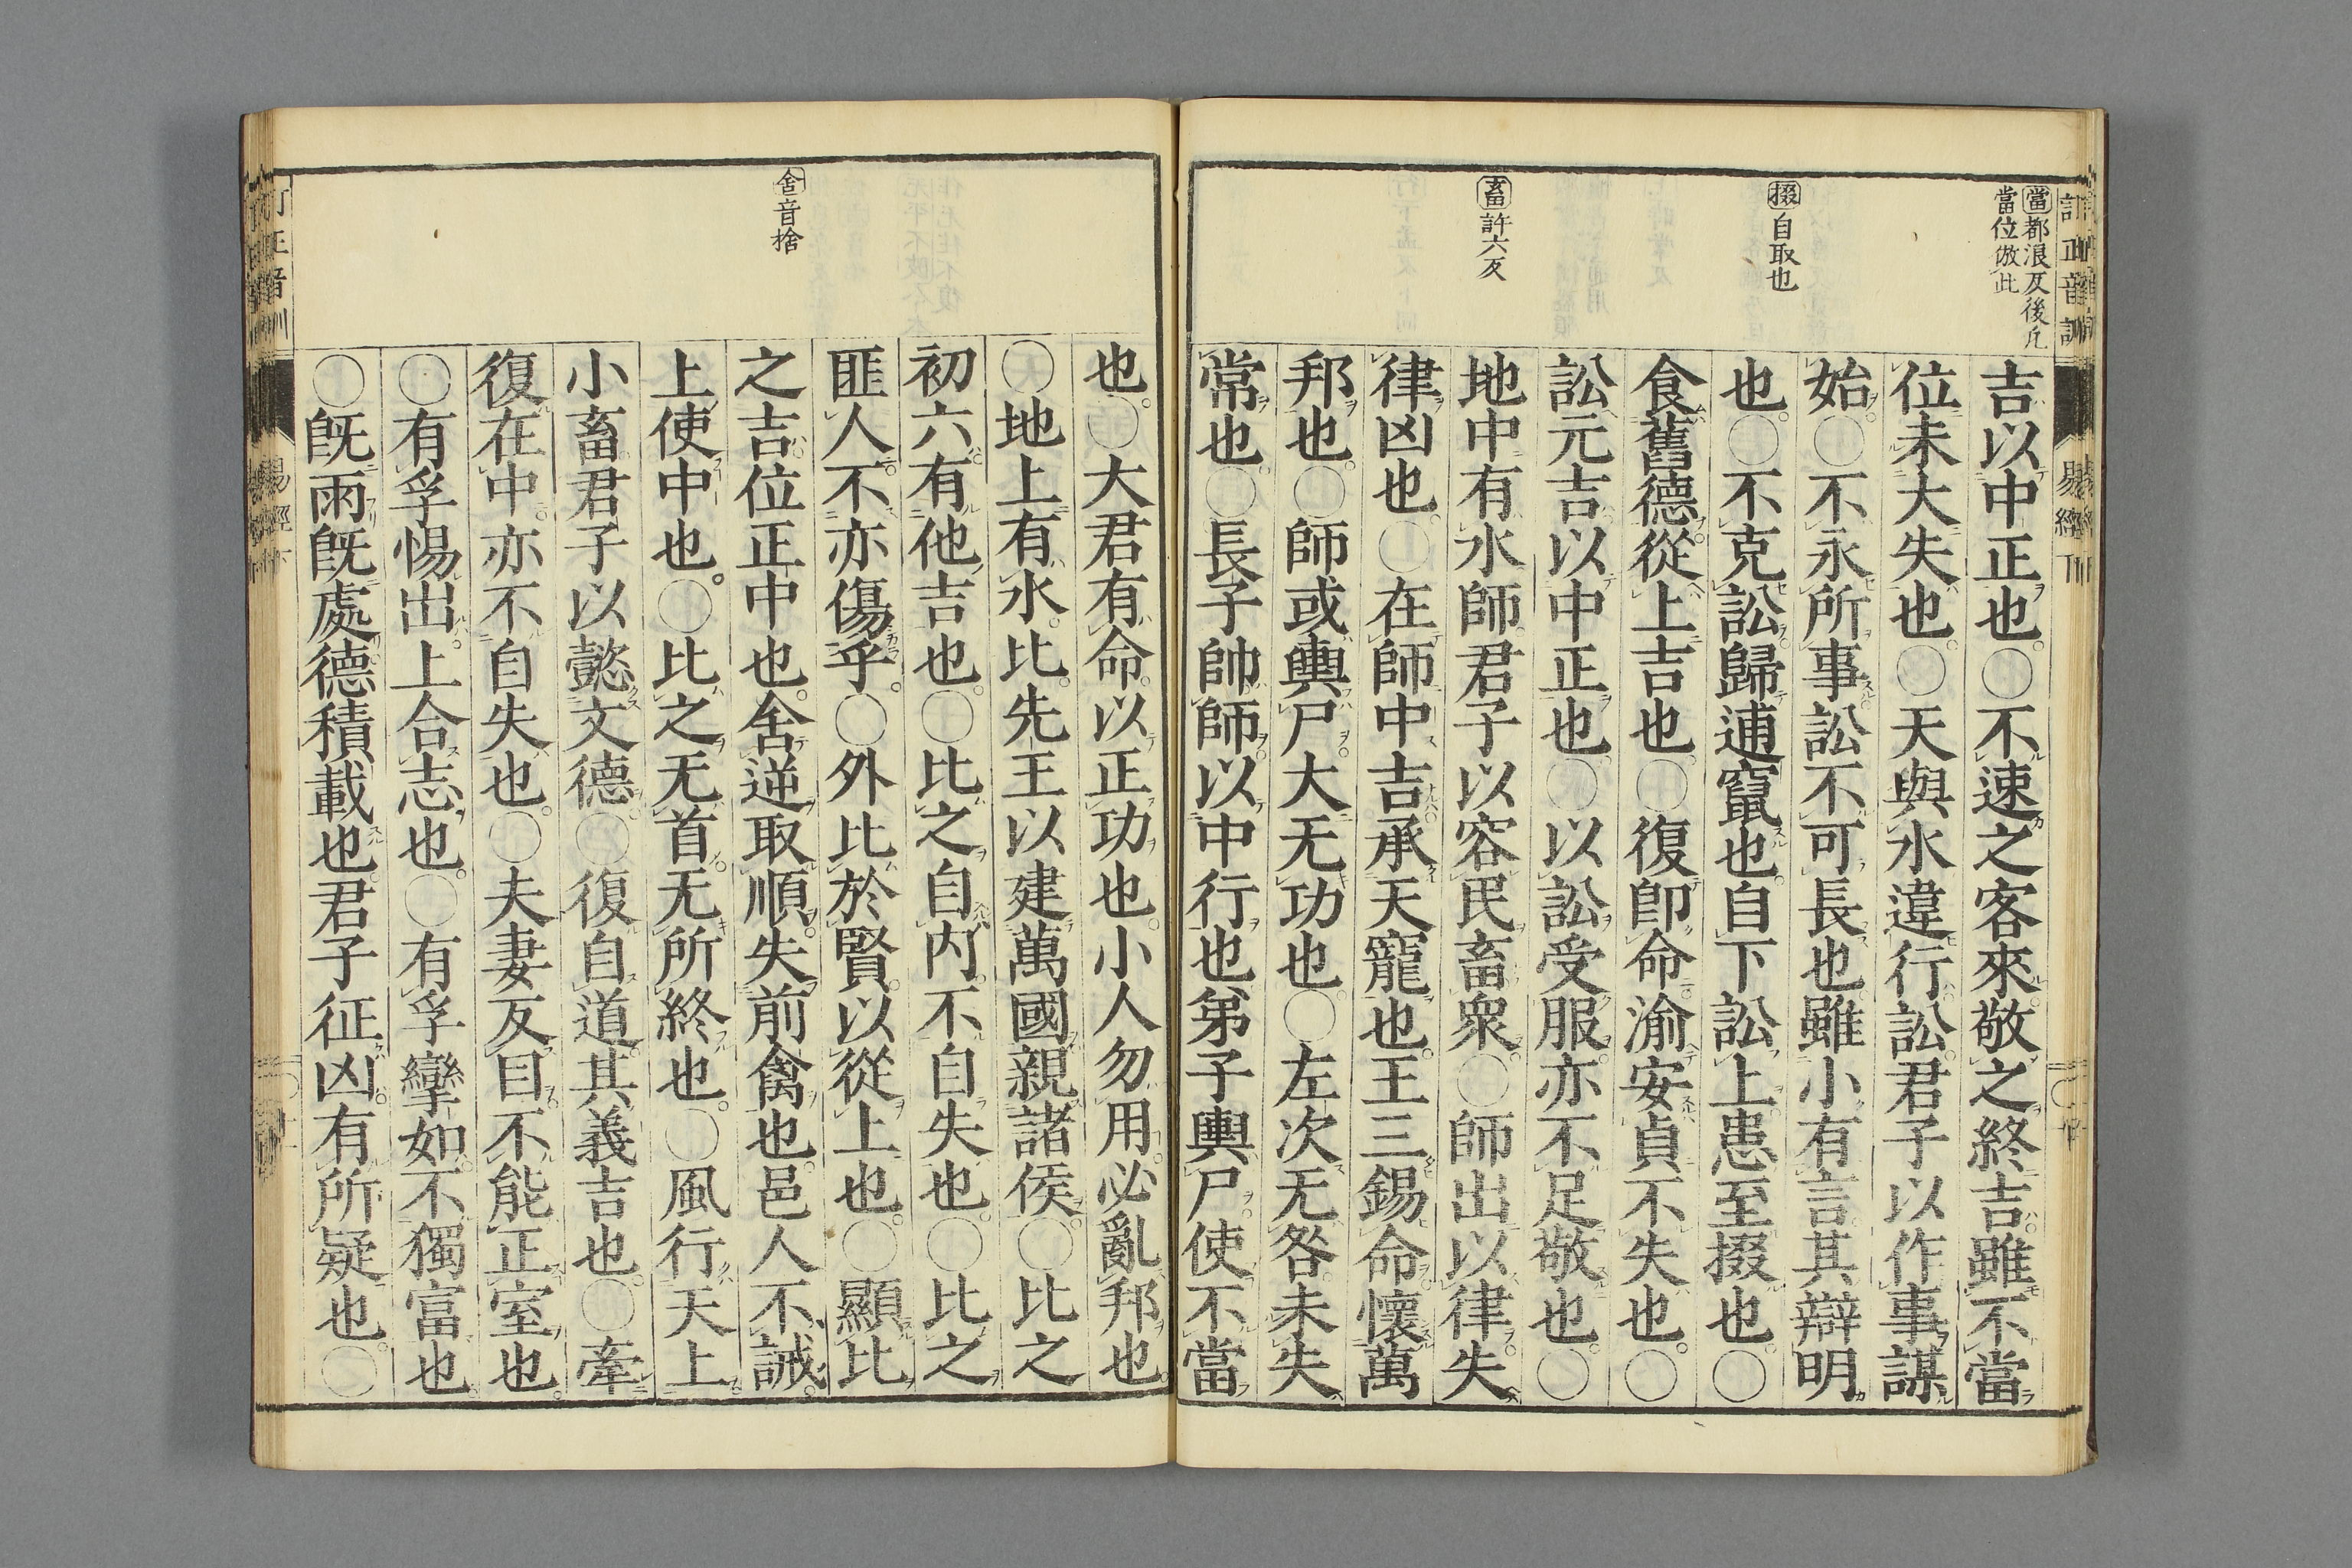 當都浪反後凡
當位倣此
掇自取也
畜許六反
吉以中正也○不速之客來敬之終吉雖不當
位未大失也○天與水違行訟君子以作事謀
始○不永所事訟不可長也雖小有言其辯明
也○不克訟歸逋竄也自下訟上患至掇也○
食舊德從上吉也○復卽命渝安貞不失也○
訟元吉以中正也○以訟受服亦不足敬也○
地中有水師君子以容民畜衆○師出以律失
律凶也○在師中吉承天寵也王三錫命懷萬
邦也○師或輿尸大无功也○左次无咎未失
常也○長子帥師以中行也弟子輿尸使不當
舍音捨
也○大君有命以正功也小人勿用必亂邦也
○地上有水比先王以建萬國親諸侯○比之
初六有他吉也○比之自內不自失也○比之
匪人不亦傷乎○外比於賢以從上也○顯比
之吉位正中也舍逆取順失前禽也邑人不誡
上使中也○比之无首无所終也○風行天上
小畜君子以懿文德○復自道其義吉也○牽
復在中亦不自失也○夫妻反目不能正室也
○有孚惕出上合志也○有孚攣如不獨富也
○旣雨旣處德積載也君子征凶有所疑也○